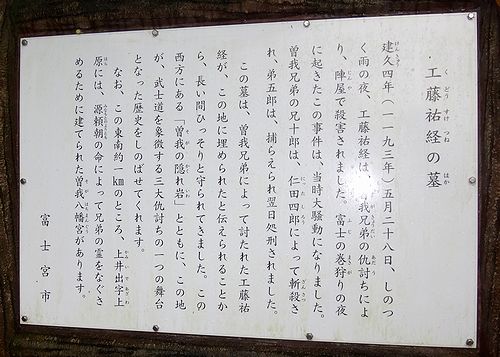 工藤祐経の墓
建久四年(一一九三年)五月二十八日、しのつ
く雨の夜、工藤祐経は、曽我兄弟の仇討ちによ
り、陣屋で殺害されました。富士の巻狩りの夜
に起きたこの事件は、当時大騒動になりました。
曽我兄弟の兄十郎は、仁田四郎によって斬殺さ
れ、弟五郎は、捕らえられ翌日処刑されました。
この墓は、曽我兄弟によって討たれた工藤祐
経が、この地に埋められたと伝えられることか
ら、長い間ひっそりと守られてきました。この
西方にある「曽我の隠れ岩」とともに、この地
が、武士道を象徴する三大仇討ちの一つの舞台
となった歴史をしのばせてくれます。
なお、この東南約一kmのところ、上井出字上
原には、源頼朝の命によって兄弟の霊をなぐさ
めるために建てられた曽我八幡宮があります。
富士宮市